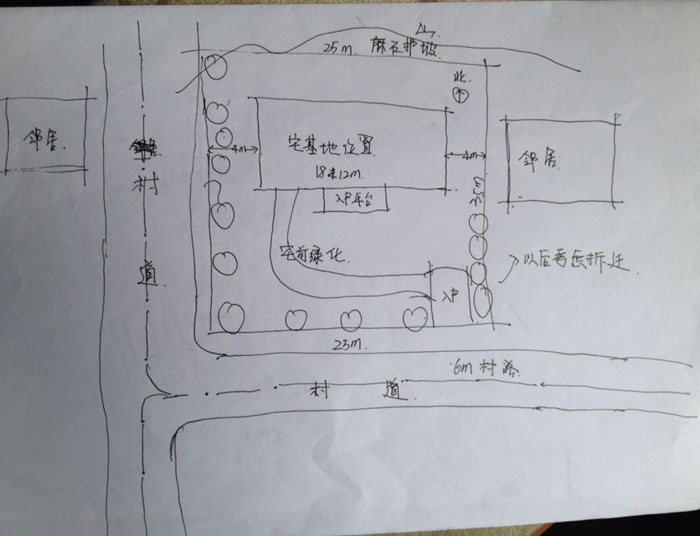 山
25m.
护坡
北
邻居.
宅基地位置
4m
4m
18米12m.
邻居.
入户平台
25m
村
道
宅前绿化
入户
以后
拆迁
23m.
6m 村路.
村 道.